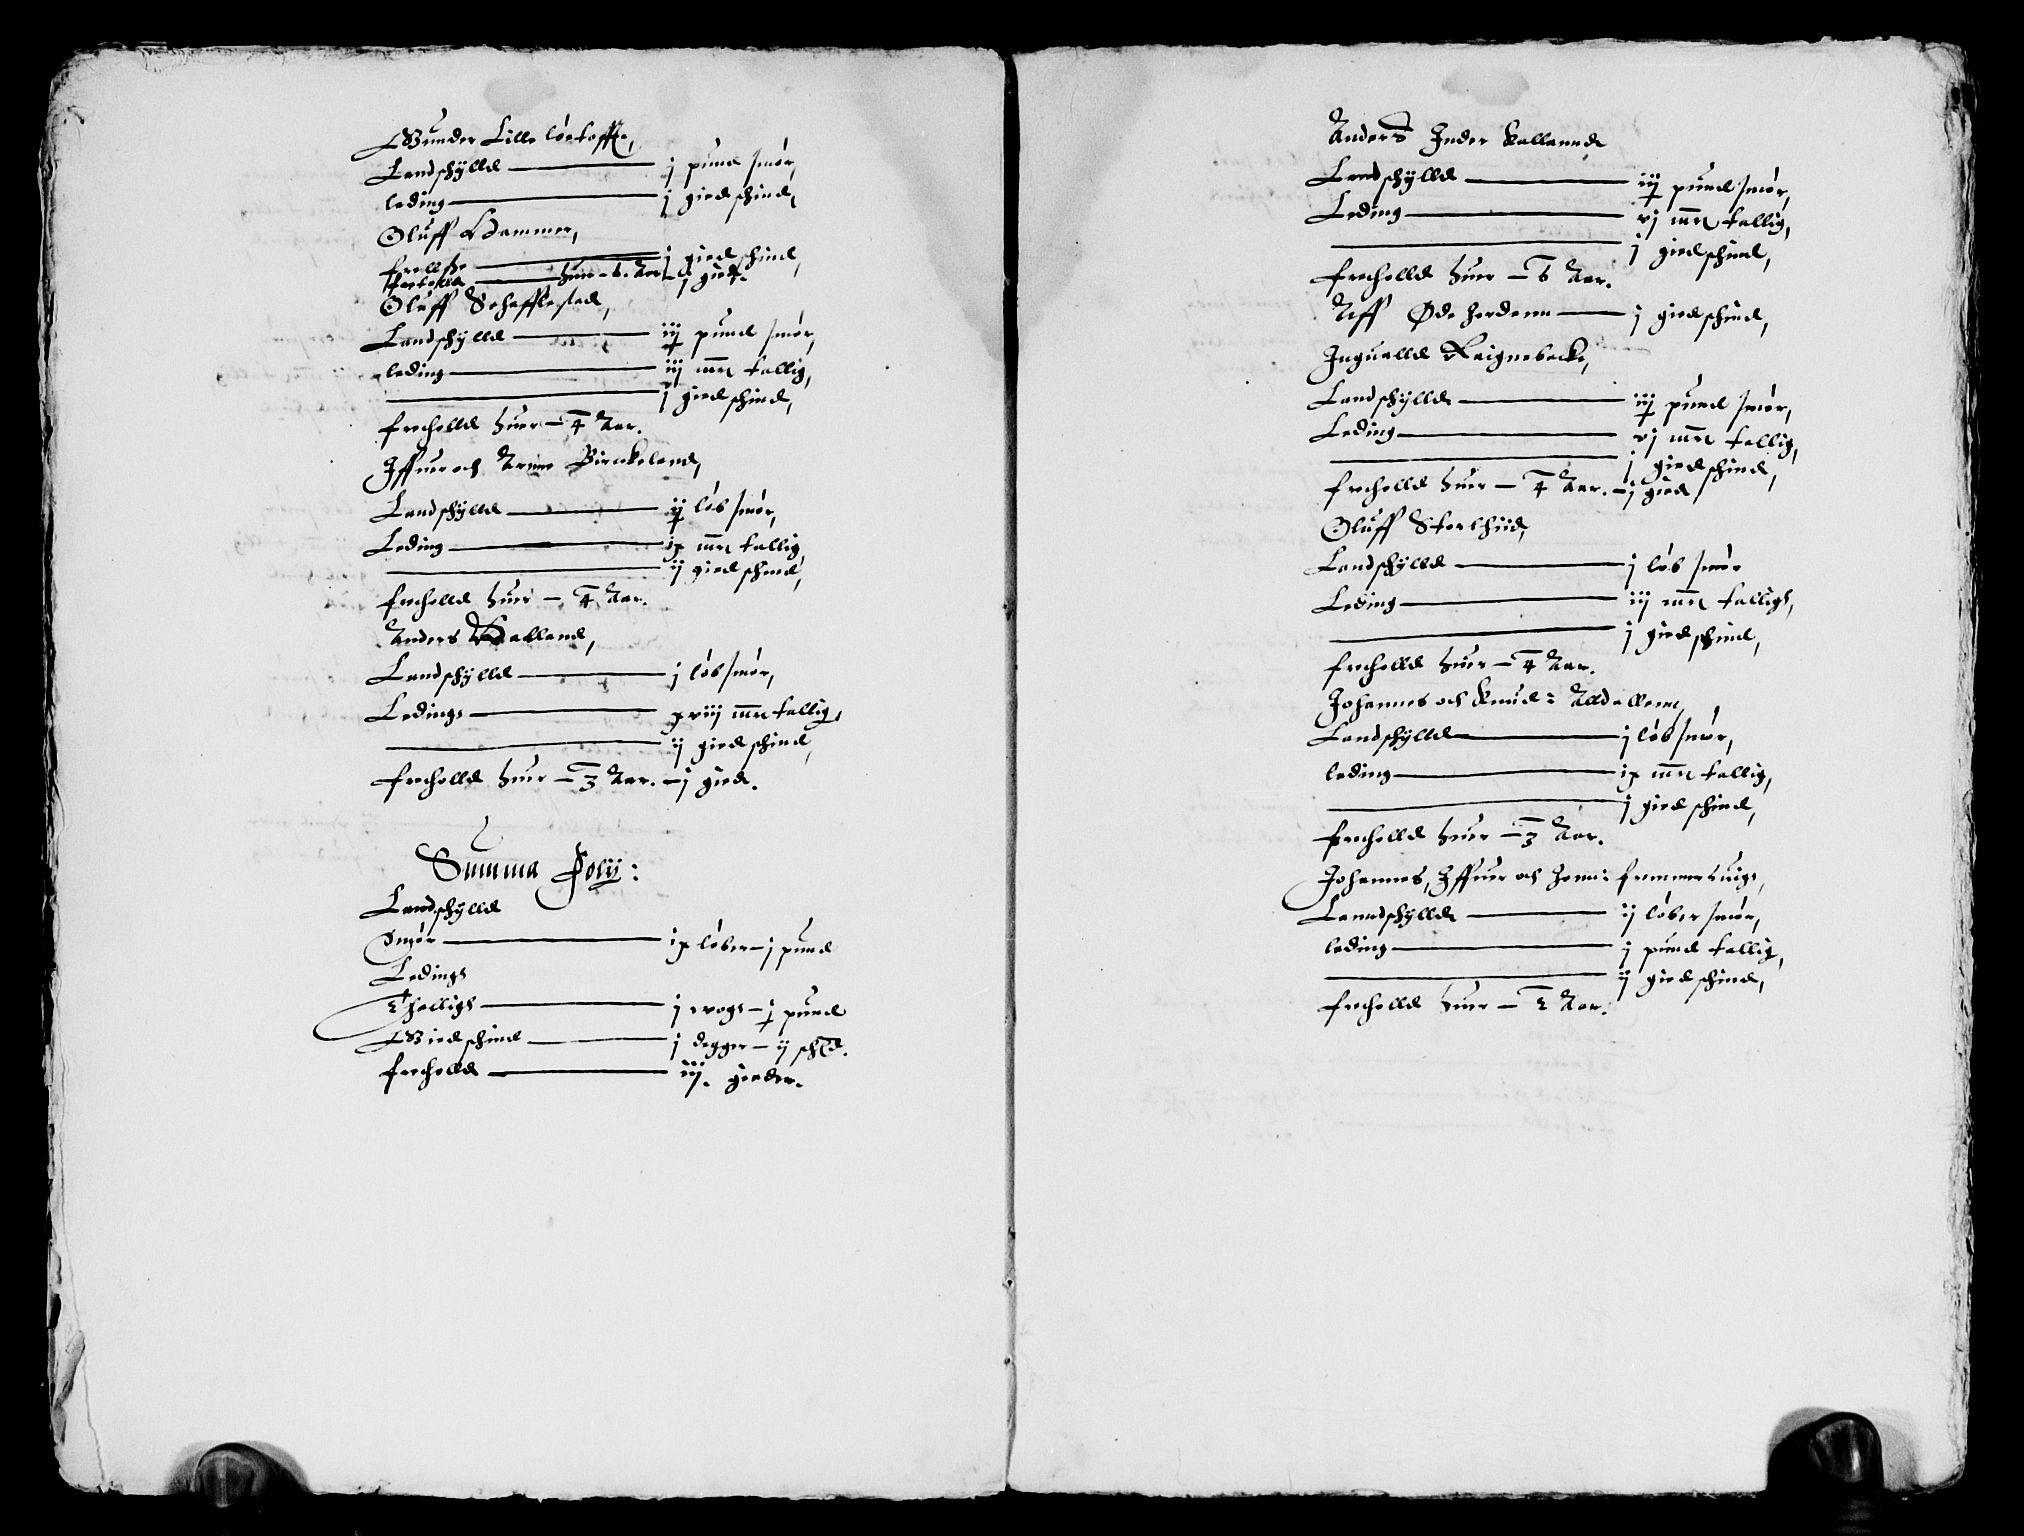 Gunder Lille løetofftt,
Landschylld j pund smør,
leding j giedschind,
Oluff Hammer,
frellsse j giedschind,
huer 6. Aar j gied.
Oluff Schafflestad,
Landschylld iij pund smør,
leding iij mrk tallig,
j giedschind,
frecholld huer 4 Aar.
Iffuer och Arnne Birckeland,
Landschylld ij løb smør,
Leding ix mrk tallig
ij giedschind,
frecholld huer 4 Aar.
Anders Dalland,
Landschylld j løb smør,
Ledings xviij mrk tallig,
ij giedschind,
frecholld huer 3 Aar. j gied.
Summa Folij:
Landschylld
Smør ix løber j pund
Ledings
Thalligh j wogh j pund
Giedschind j degger ij schd.
frecholld iij. gieder.
Anders Inder kallannd
Landschylld iij pund smør,
Leding vj mrk tallig,
j giedschind,
frecholld huer 6 Aar.
Aff Øde Jordenn j giedschind,
Inguelld Reignebecke,
Landschylld iij pund smør,
Leding vj mrk tallig,
j giedschind,
frecholld huer 4 Aar. j gied
Oluff Storlhiid,
Landschylld j løb smør
Leding iij mrk talligh,
j giedschind,
frecholld huer 4 Aar.
Johannes och knud: Aldallenn,
Landschylld j løb smør,
leding ix mrk tallig,
j giedschind,
frecholld huer 3 Aar.
Johannes, Iffuer och Jonn: frammersuigh,
Lanndschylld ij løber smør,
leding j pund tallig,
ij giedschind,
frecholld huer 2 Aar.